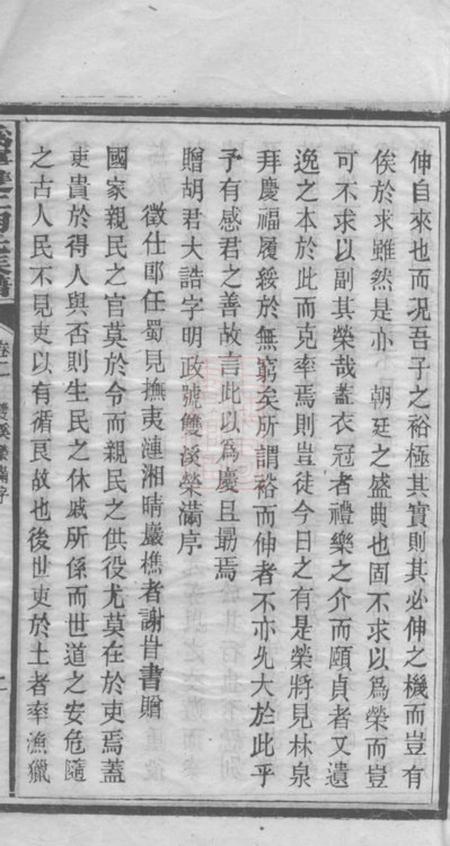 伸自來也而況吾子之裕極其實則其必伸之機而豈有
俟於求雖然是亦　朝廷之盛典也固不求以爲榮而豈
可不求以副其榮哉蓋衣冠者禮樂之介而頤貞者又遺
逸之本於此而克率焉則豈徒今日之有是榮將見林泉
拜慶福履綏於無窮矣所謂裕而伸者不亦尤大於此乎
予有感君之善故言此以爲慶且勗焉
贈胡君大誥字明政號雙溪榮滿序
徵仕郎任蜀見撫夷漣湘晴巖樵者謝
書贈
國家親民之官莫於令而親民之供役尤莫在於吏焉蓋
吏貴於得人與否則生民之休戚所係而世道之安危隨
之古人民不見吏以有循良故也後世吏於土者率漁獵
卷二
雙溪榮滿序